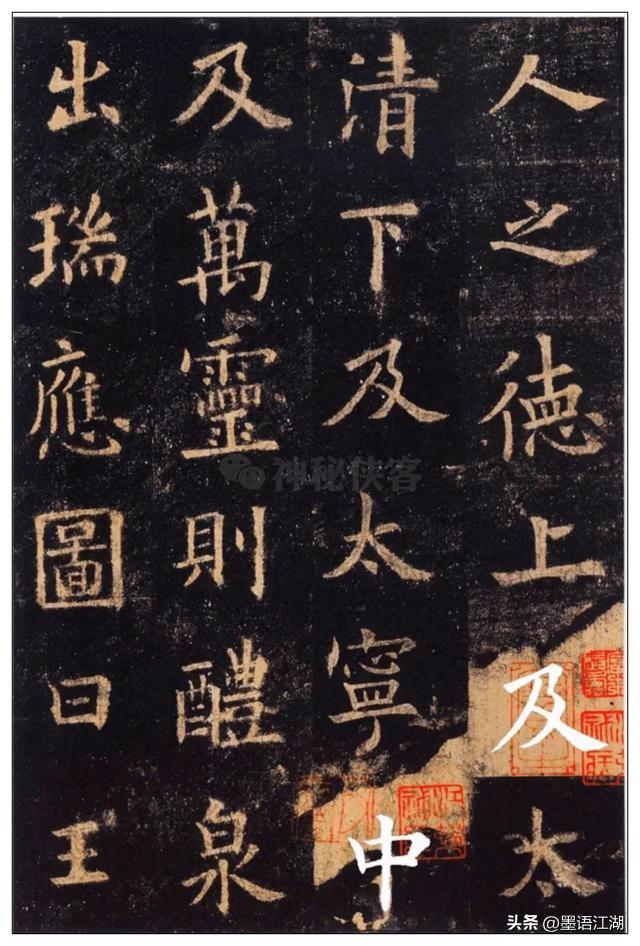 人之德上及太
清下及太寧中
及萬靈則醴泉
出瑞應圖曰王
神秘侠客
头条 @墨语江湖